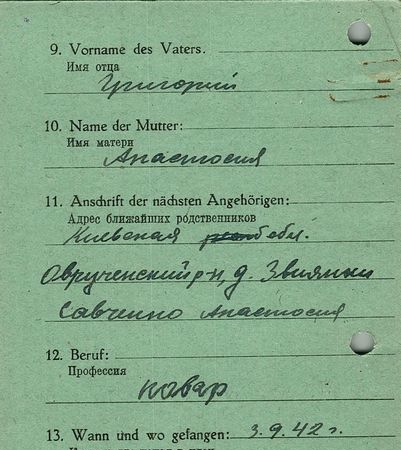 9. Vorname des Vaters.
Имя отца
Григорий
10. Name der Mutter:
Имя матери
Анастосия
11. Anschrift der nächsten Angehörigen:
Адрес ближайших родственников
Киевская обл.
Оврученский р-н, д. Звиянки
Савченко Анастосия
12. Beruf:
Профессия
повар
13. Wann und wo gefangen: 3.9.42 г.